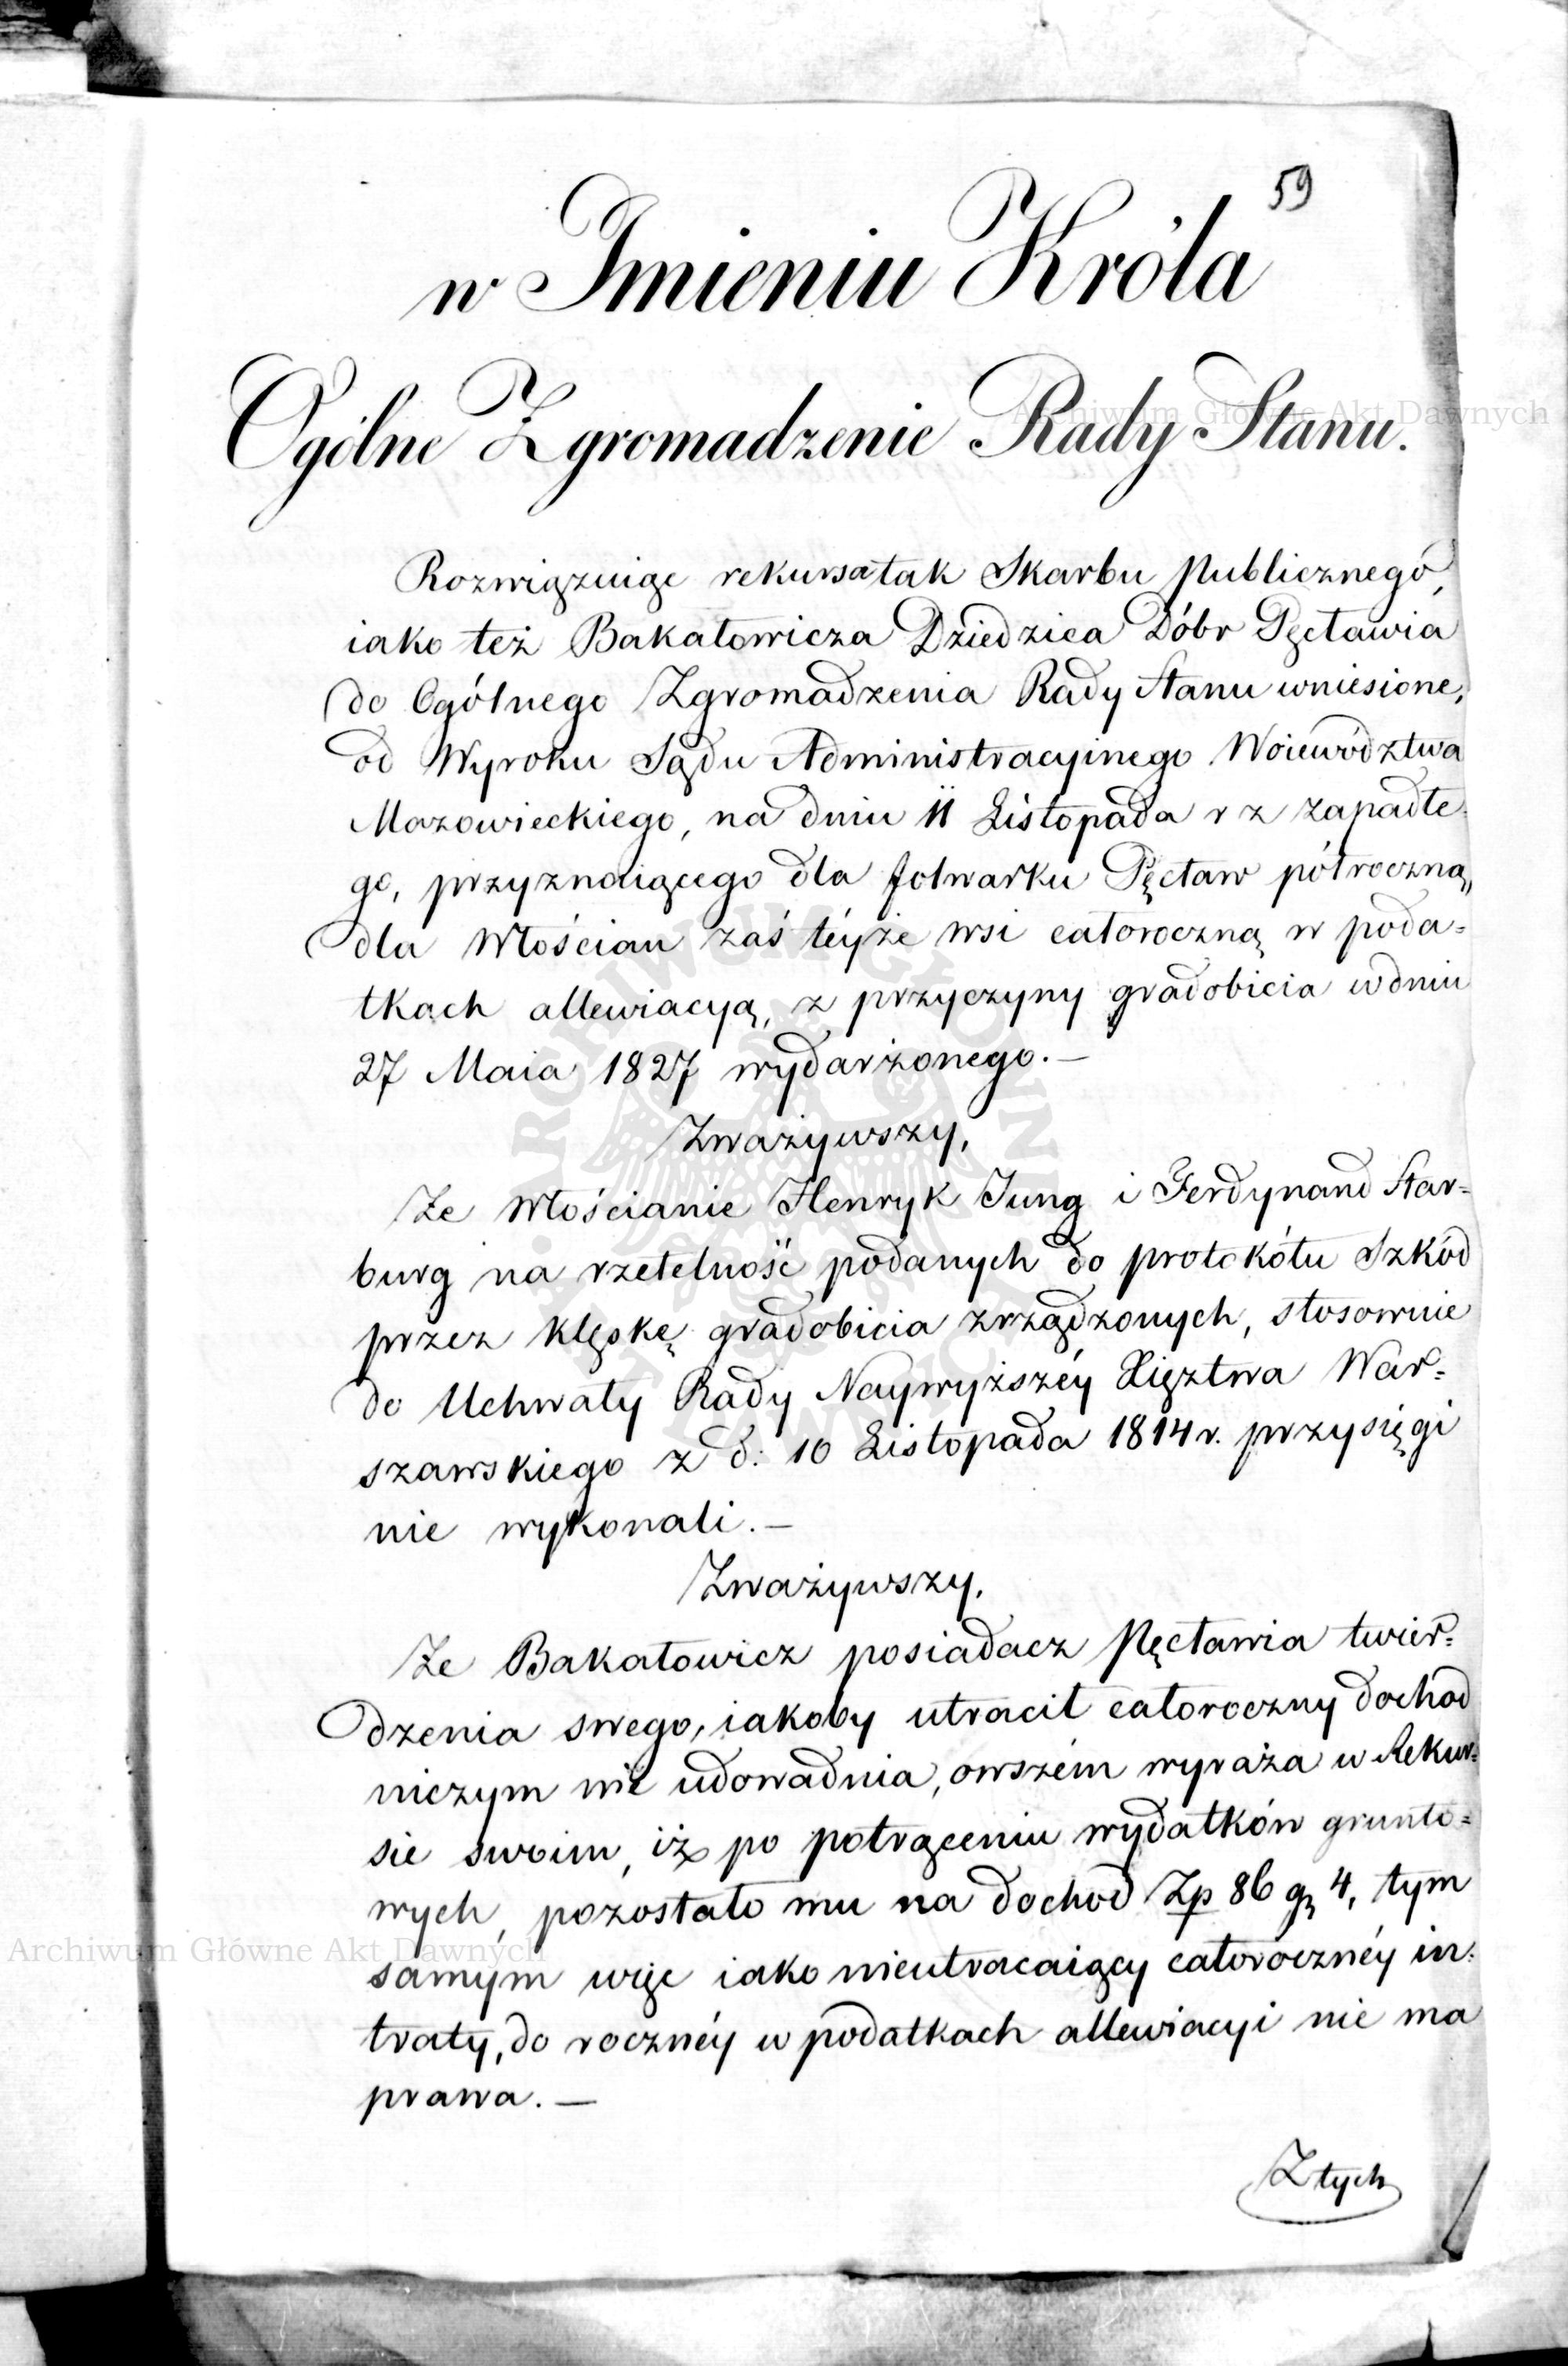 59
w Imieniu Króla
Ogólne Zgromadzenie Rady Stanu.
Rozwiązuiąc rekursa tak Skarbu publicznego,
iako też Bakałowicza Dziedzica Dóbr Pęcławia
do Ogólnego Zgromadzenia Rady Stanu wniesione,
od Wyroku Sądu Administracyinego Woiewództwa
Mazowieckiego, na dniu 11 Listopada r z zapadłe-
go, przyznaiącego dla folwarku Pęcław półroczną,
dla Włościan zaś téyże wsi całoroczną w poda=
tkach allewiacyą, z przyczyny gradobicia w dniu
27 Maia 1827 wydarzonego. —
Zważywszy,
Że Włościanie Henryk Jung i Ferdynand Star=
burg na rzetelność podanych do protokółu Szkód
przez klęskę gradobicia zrządzonych, stosownie
do Uchwały Rady Naywyższéy Xięztwa War=
szawskiego z d: 10 Listopada 1814 r. przysięgi
nie wykonali. —
Zważywszy,
Że Bakałowicz posiadacz Pęcławia twier=
dzenia swego, iakoby utracił całoroczny dochod
niczym nie udowadnia, owszém wyraża w Rekur=
sie swoim, iż po potrąceniu wydatków grunto=
wych, pozostało mu na dochod Zp 86 gr 4, tym
samym więc iako nieutracaiący całorocznéy in=
traty, do rocznéy w podatkach allewiacyi nie ma
prawa. —
Z tych
Archiwum Główne Akt Dawnych
Archiwum Główne Akt Dawnych
ARCHIWUM GŁÓWNE AKT DAWNYCH